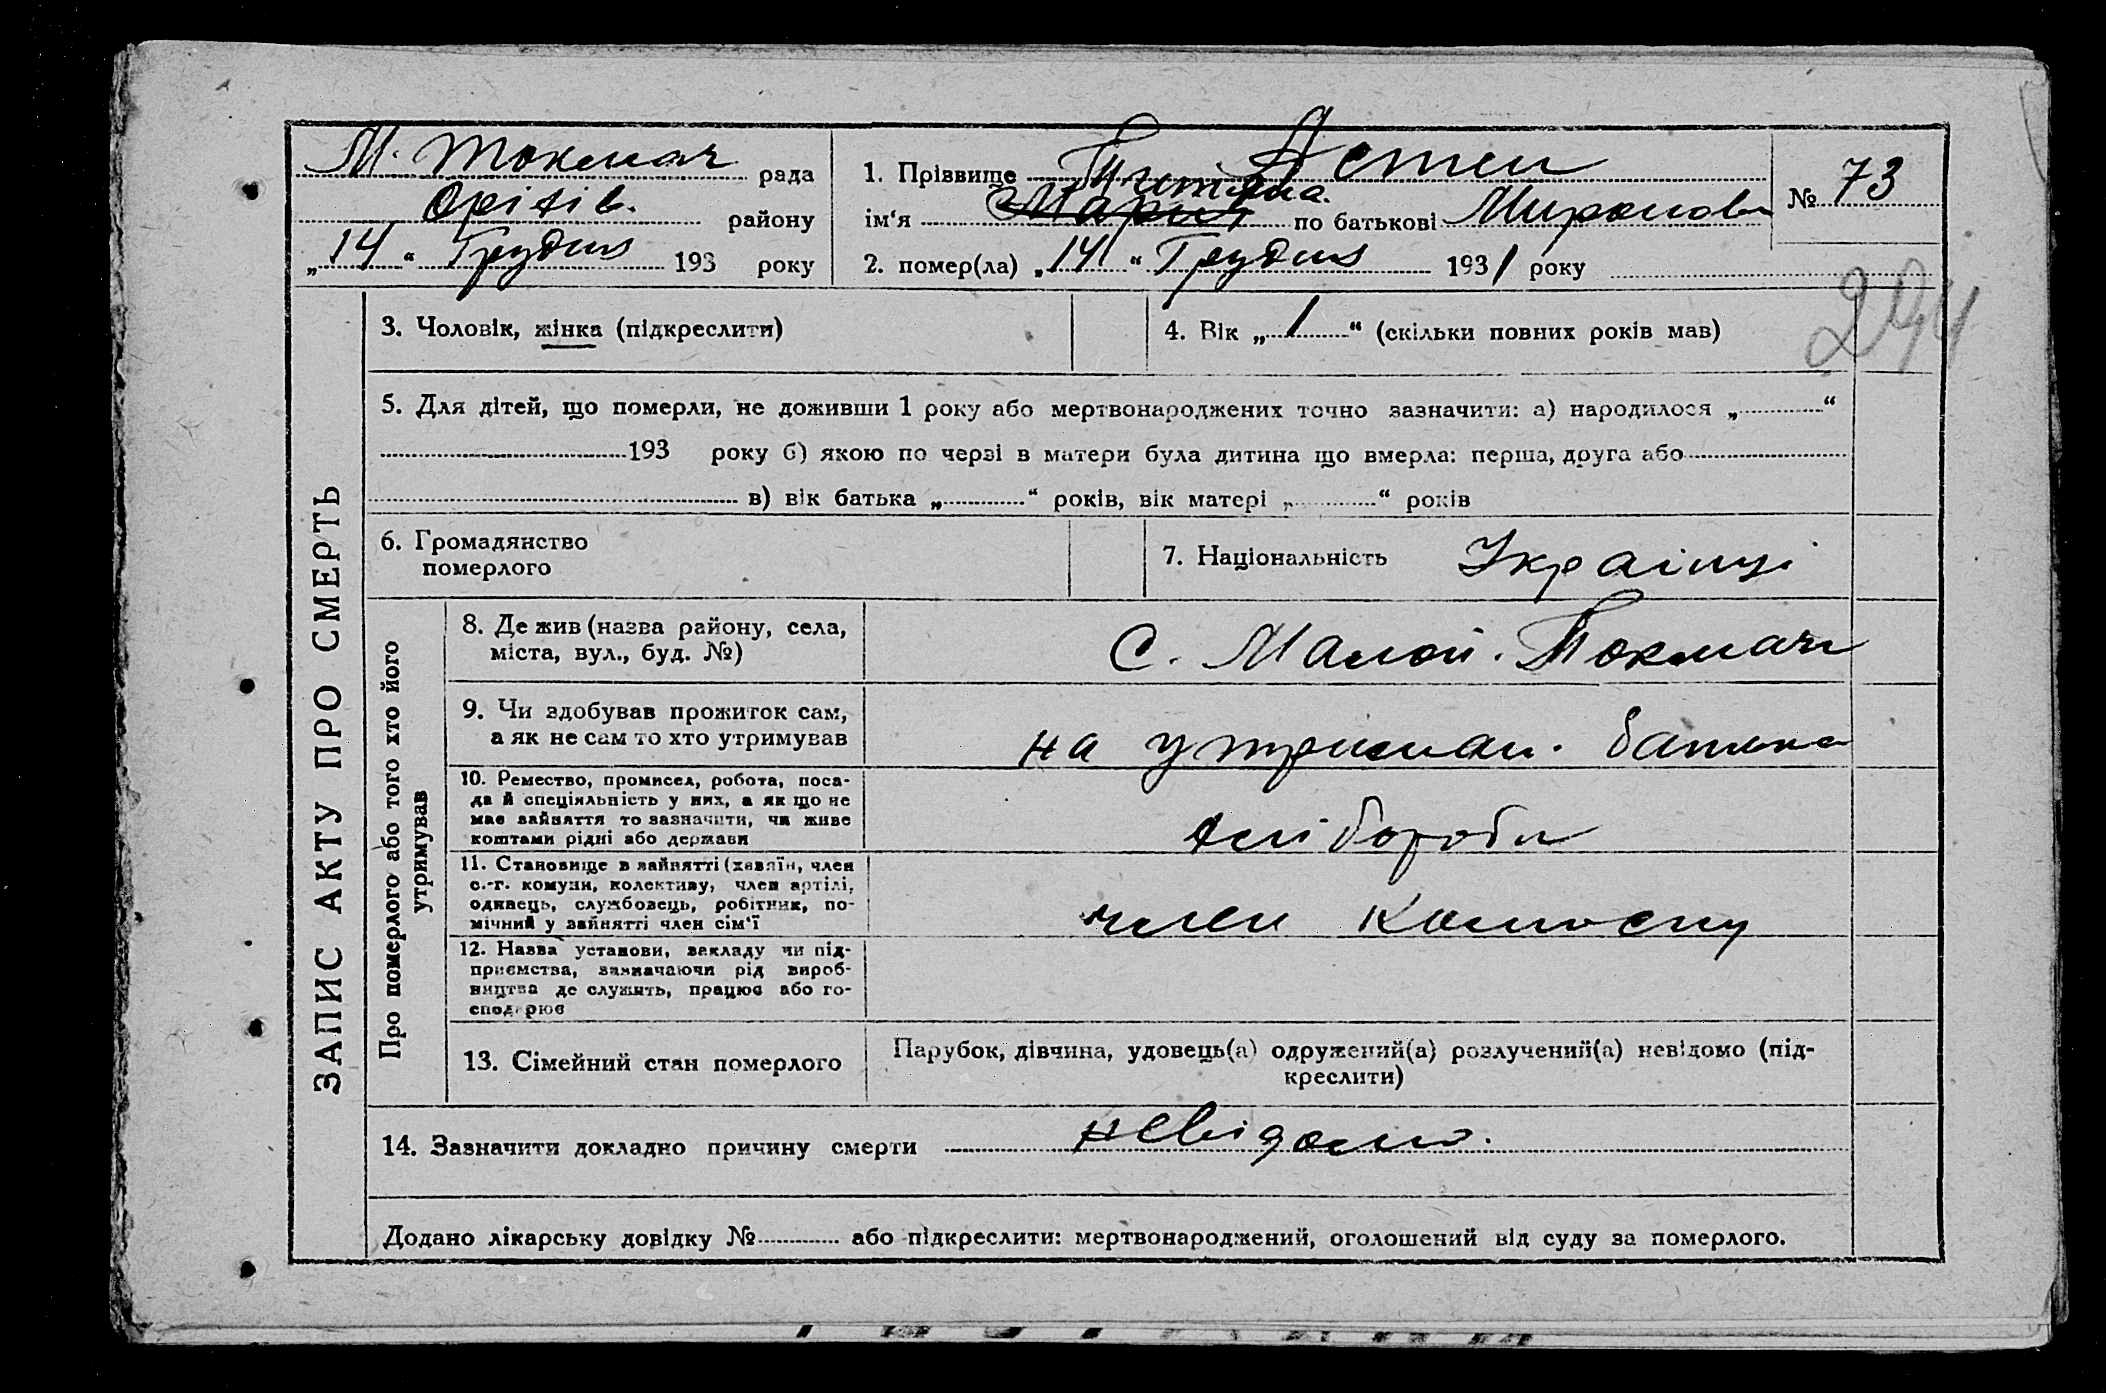 М. Токмач рада
Оріхів. району
„14“ Грудня 193 року
1. Прізвище
ім‘я Марія по батькові Миронова
2. помер(ла) „14“ Грудня 1931 року
№ 73
294
ЗАПИС АКТУ ПРО СМЕРТЬ
3. Чоловік, жінка (підкреслити)
4. Вік „1“ (скільки повних років мав)
5. Для дітей, що померли, не доживши 1 року або мертвонароджених точно зазначити: а) народилося „ “
193 року б) якою по черзі в матери була дитина що вмерла: перша, друга або
в) вік батька „ “ років, вік матері „ “ років
6. Громадянство
померлого
7. Національність Українці
Про померлого або того хто його
утримував
8. Де жив (назва району, села,
міста, вул., буд. №)
С. Малой. Токмачк
9. Чи здобував прожиток сам,
а як не сам то хто утримував
на утриман. батька
10. Ремество, промисел, робота, поса-
да й спеціяльність у них, а як що не
має зайняття то зазначити, чи живе
коштами рідні або держави
хлібороби
11. Становище в зайнятті (хазяїн, член
с.-г. комуни, колективу, член артілі,
одинець, службовець, робітник, по-
мічний у зайнятті член сім‘ї
член колгоспу
12. Назва установи, закладу чи під-
приємства, зазначаючи рід вироб-
ництва де служить, працює або го-
сподарює
13. Сімейний стан померлого
Парубок, дівчина, удовець(а) одружений(а) розлучений(а) невідомо (під-
креслити)
14. Зазначити докладно причину смерти невідомо.
Додано лікарську довідку № або підкреслити: мертвонароджений, оголошений від суду за померлого.